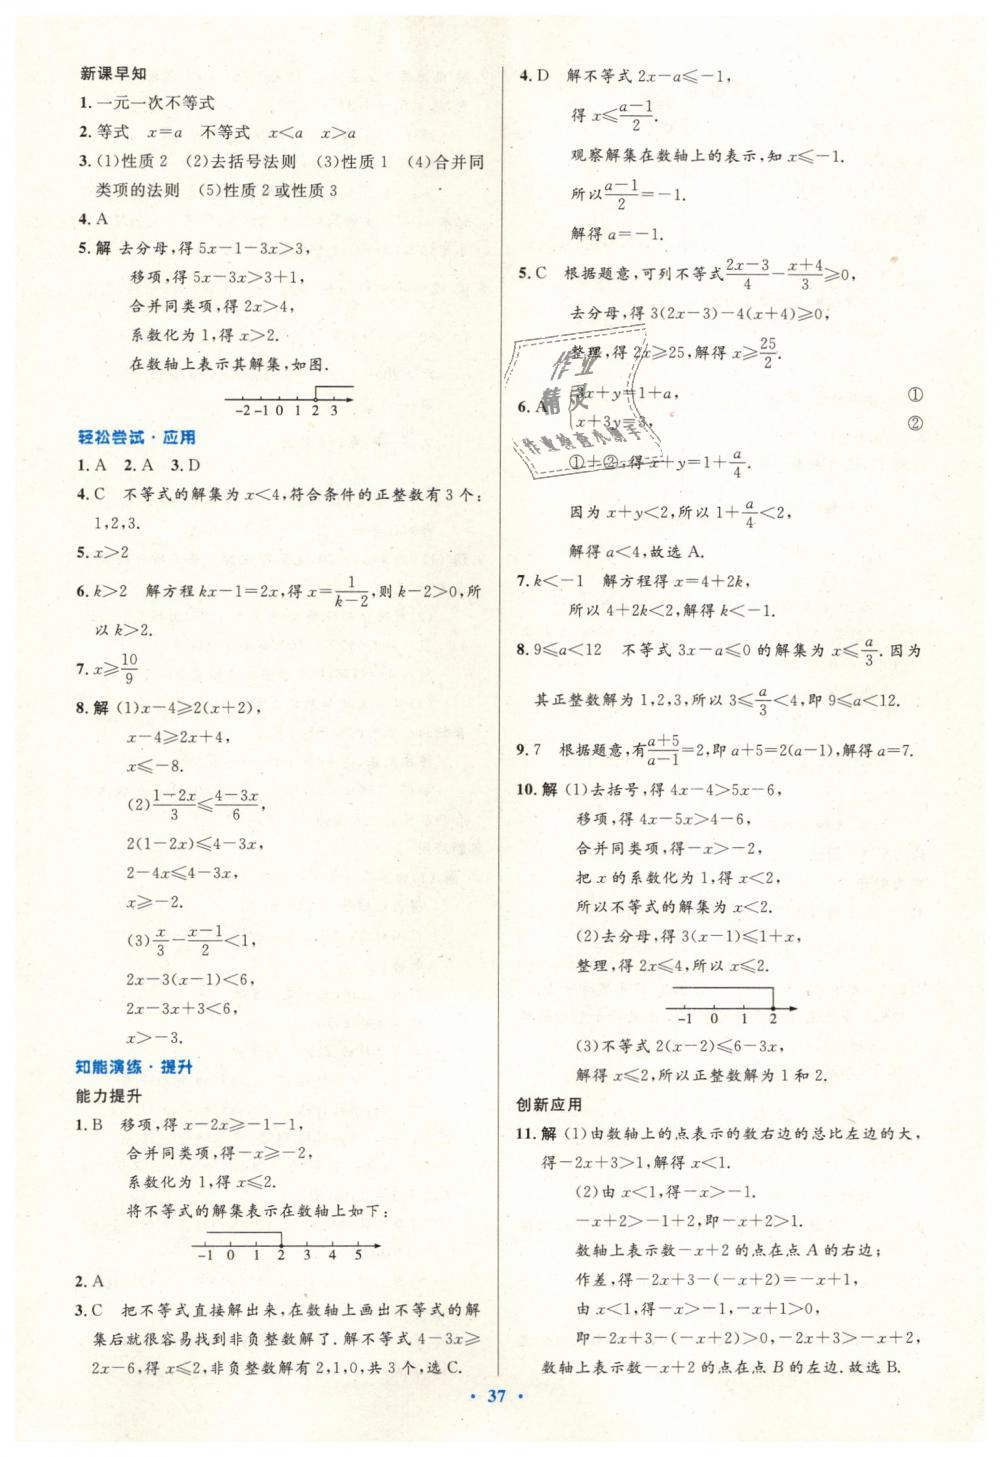 新课早知
1.一元一次不等式
2.等式 x=a 不等式 x<a x>a
3.(1)性质2 (2)去括号法则 (3)性质1 (4)合并同
类项的法则 (5)性质2或性质3
4.A
5.解 去分母,得5x-1-3x>3,
移项,得5x-3x>3+1,
合并同类项,得2x>4,
系数化为1,得x>2.
在数轴上表示其解集,如图.
-2 -1 0 1 2 3
轻松尝试·应用
1.A 2.A 3.D
4.C 不等式的解集为x<4,符合条件的正整数有3个:
1,2,3.
5.x>2
6.k>2 解方程kx-1=2x,得x=1/(k-2),则k-2>0,所
以k>2.
7.x≥10/9
8.解 (1)x-4≥2(x+2),
x-4≥2x+4,
x≤-8.
(2)(1-2x)/3≤(4-3x)/6,
2(1-2x)≤4-3x,
2-4x≤4-3x,
x≥-2.
(3)x/3-(x-1)/2<1,
2x-3(x-1)<6,
2x-3x+3<6,
x>-3.
知能演练·提升
能力提升
1.B 移项,得x-2x≥-1-1,
合并同类项,得-x≥-2,
系数化为1,得x≤2.
将不等式的解集表示在数轴上如下:
-1 0 1 2 3 4 5
2.A
3.C 把不等式直接解出来,在数轴上画出不等式的解
集后就很容易找到非负整数解了.解不等式4-3x≥
2x-6,得x≤2,非负整数解有2,1,0,共3个,选C.
4.D 解不等式2x-a≤-1,
得x≤(a-1)/2.
观察解集在数轴上的表示,知x≤-1.
所以(a-1)/2=-1.
解得a=-1.
5.C 根据题意,可列不等式(2x-3)/4-(x+4)/3≥0,
去分母,得3(2x-3)-4(x+4)≥0,
整理,得2x≥25,解得x≥25/2.
6.A 3x+y=1+a, ①
x+3y=3, ②
①+②,得x+y=1+a/4.
因为x+y<2,所以1+a/4<2,
解得a<4,故选A.
7.k<-1 解方程得x=4+2k,
所以4+2k<2,解得k<-1.
8.9≤a<12 不等式3x-a≤0的解集为x≤a/3.因为
其正整数解为1,2,3,所以3≤a/3<4,即9≤a<12.
9.7 根据题意,有(a+5)/(a-1)=2,即a+5=2(a-1),解得a=7.
10.解 (1)去括号,得4x-4>5x-6,
移项,得4x-5x>4-6,
合并同类项,得-x>-2,
把x的系数化为1,得x<2,
所以不等式的解集为x<2.
(2)去分母,得3(x-1)≤1+x,
整理,得2x≤4,所以x≤2.
-1 0 1 2
(3)不等式2(x-2)≤6-3x,
解得x≤2,所以正整数解为1和2.
创新应用
11.解 (1)由数轴上的点表示的数右边的总比左边的大,
得-2x+3>1,解得x<1.
(2)由x<1,得-x>-1.
-x+2>-1+2,即-x+2>1.
数轴上表示数-x+2的点在点A的右边;
作差,得-2x+3-(-x+2)=-x+1,
由x<1,得-x>-1,-x+1>0,
即-2x+3-(-x+2)>0,-2x+3>-x+2,
数轴上表示数-x+2的点在点B的左边.故选B.
作业
精灵
作业检查小帮手
· 37 ·